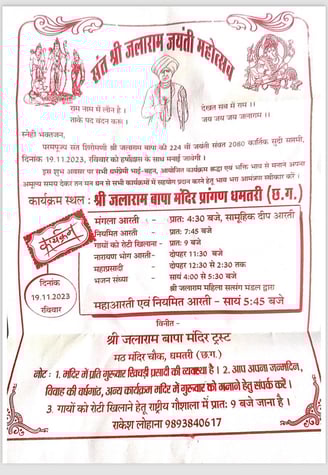 संत श्री जलाराम जयंती महोत्सव
राम नाम में लीन है ।
देखत सब में राम ।।
ताके पद वंदन करू ।
जय जय जय जलाराम ।।
स्नेही भक्तजन,
परमपूज्य संत शिरोमणी श्री जलाराम बापा की 224 वीं जयंती संवत 2080 कार्तिक सुदी सातमी,
दिनांक 19.11.2023, रविवार को हर्षोल्लास के साथ मनाई जावेगी ।
इस शुभ अवसर पर सभी धर्मप्रेमी भाई-बहन, आयोजित कार्यक्रम श्रद्धा एवं भक्ति भाव से मनाने अपना
अमूल्य समय देकर तन मन धन से सभी कार्यक्रमों में सहयोग प्रदान करने हेतु भाव भरा आमंत्रण स्वीकार करें ।
कार्यक्रम स्थल : श्री जलाराम बापा मंदिर प्रांगण धमतरी (छ.ग.)
कार्यक्रम
दिनांक
19.11.2023
रविवार
मंगला आरती : - प्रात: 4:30 बजे, सामूहिक दीप आरती
नियमित आरती - प्रात: 7:45 बजे
गायों को रोटी खिलाना - प्रात: 9 बजे
नारायण भोग आरती - दोपहर 11:30 बजे
महाप्रसादी - दोपहर 12:30 से 2:30 तक
भजन संध्या - सायं 4:00 से 5:30 बजे
श्री जलाराम महिला सत्संग मंडल द्वारा
महाआरती एवं नियमित आरती - सायं 5:45 बजे
विनीत -
श्री जलाराम बापा मंदिर ट्रस्ट
मठ मंदिर चौक, धमतरी (छ.ग.)
नोट : 1. मंदिर में प्रति गुरुवार खिचड़ी प्रसादी की व्यवस्था है । 2. आप अपना जन्मदिन,
विवाह की वर्षगांठ, अन्य कार्यक्रम मंदिर में गुरुवार को मनाने हेतु संपर्क करें ।
3. गायों को रोटी खिलाने हेतु राष्ट्रीय गौशाला में प्रात: 9 बजे जाना है ।
राकेश लोहाना 9893840617